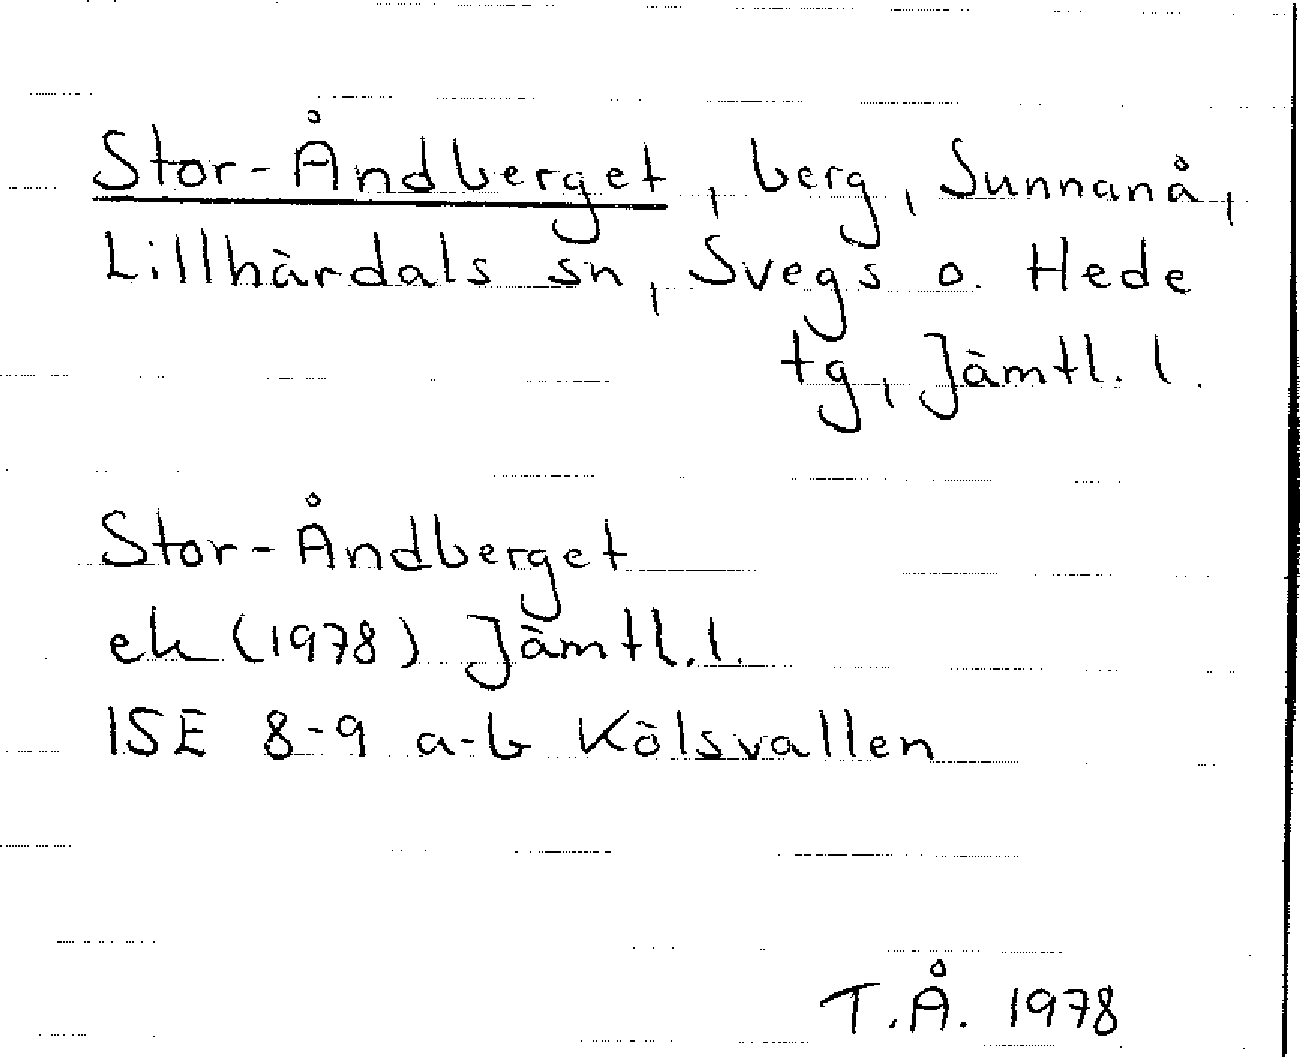 Stor-Åndberget, berg, Sunnanå,
Lillhärdals sn, Svegs o. Hede
tg, Jämtl. l.
Stor-Åndberget
ek (1978) Jämtl. l.
15E 8-9 a-b Kölsvallen
T.Å. 1978